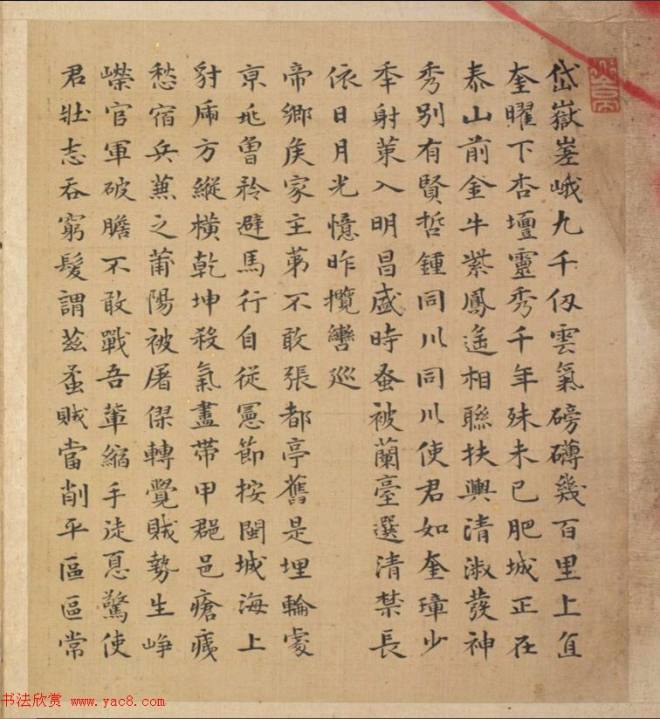 岱嶽嵳峨九千仭雲氣磅礴幾百里上直
奎曜下杏壇靈秀千年殊未已肥城正在
泰山前金牛紫鳳遥相聯扶輿清淑發神
秀別有賢哲鍾同川同川使君如奎璋少
年射策入明昌盛時蚤被蘭臺選清禁長
依日月光憶昨攬轡巡
帝鄉矦家主第不敢張都亭舊是埋輪處
京兆曽矜避馬行自從憲節按閩城海上
豺虎方縱橫乾坤殺氣盡帶甲郡邑瘡痍
愁宿兵蕪之莆陽被屠傑轉覺賊勢生崢
嶸官軍破膽不敢戰吾軰縮手徒息驚使
君壯志吞窮髮謂茲孟賊當削平區區常
书法欣赏 www.yac8.com